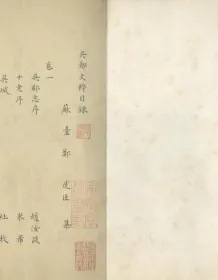 吳都文粹目錄
蘇臺鄭 虎臣 集
卷一
吳郡志序 趙汝談
十老序 米芾
吳城 杜牧